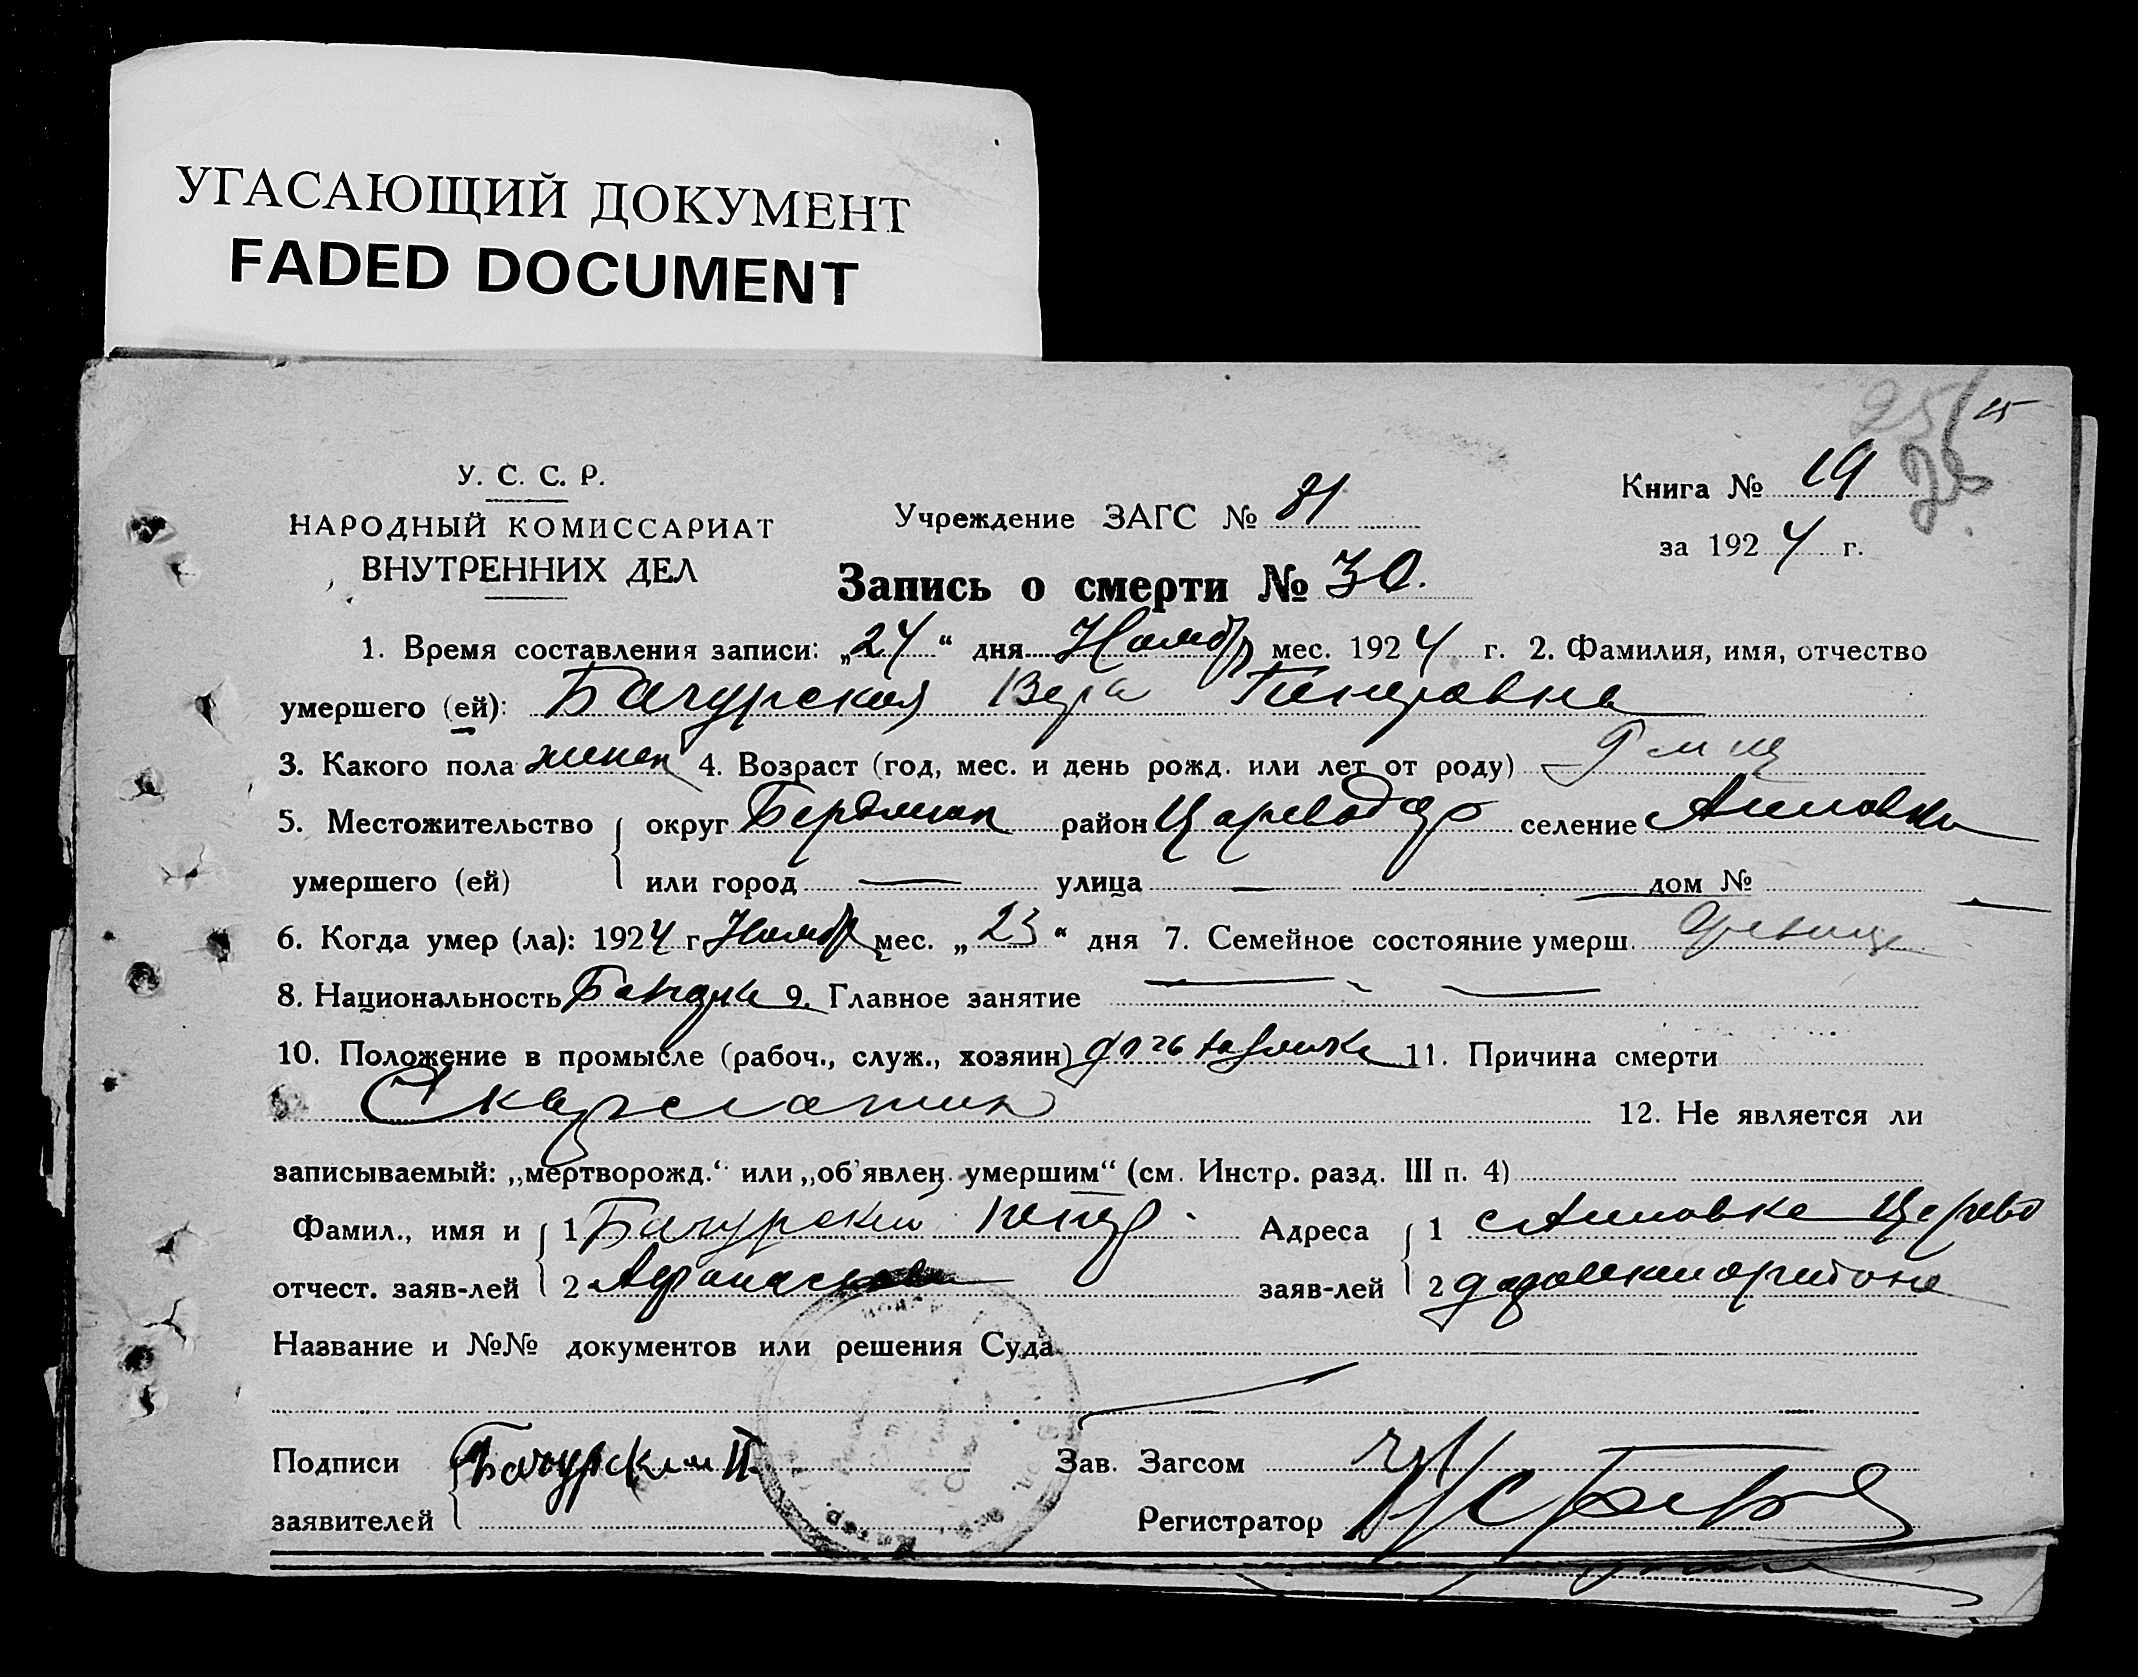 УГАСАЮЩИЙ ДОКУМЕНТ
FADED DOCUMENT
25
У. С. С. Р.
НАРОДНЫЙ КОМИССАРИАТ
ВНУТРЕННИХ ДЕЛ
Учреждение ЗАГС № 81
Книга № 19
за 1924 г.
Запись о смерти № 30.
1. Время составления записи: „24“ дня Ноябр мес. 1924 г. 2. Фамилия, имя, отчество
умершего (ей): Бачурская Вера
3. Какого пола женск 4. Возраст (год, мес. и день рожд. или лет от роду) 9 м-ц
5. Местожительство округ Бердянск район селение
умершего (ей) или город — улица — дом №
6. Когда умер (ла): 1924 г. Ноябр мес. „23“ дня 7. Семейное состояние умерш.
8. Национальность 9. Главное занятие —
10. Положение в промысле (рабоч., служ., хозяин) дочь 11. Причина смерти
Скарлатин 12. Не является ли
записываемый: „мертворожд.“ или „об'явлен. умершим“ (см. Инстр. разд. III п. 4)
Фамил., имя и 1 Бачурский Адреса 1
отчест. заяв-лей 2 заяв-лей 2
Название и №№ документов или решения Суда
Подписи Бачурский П. Зав. Загсом
заявителей Регистратор